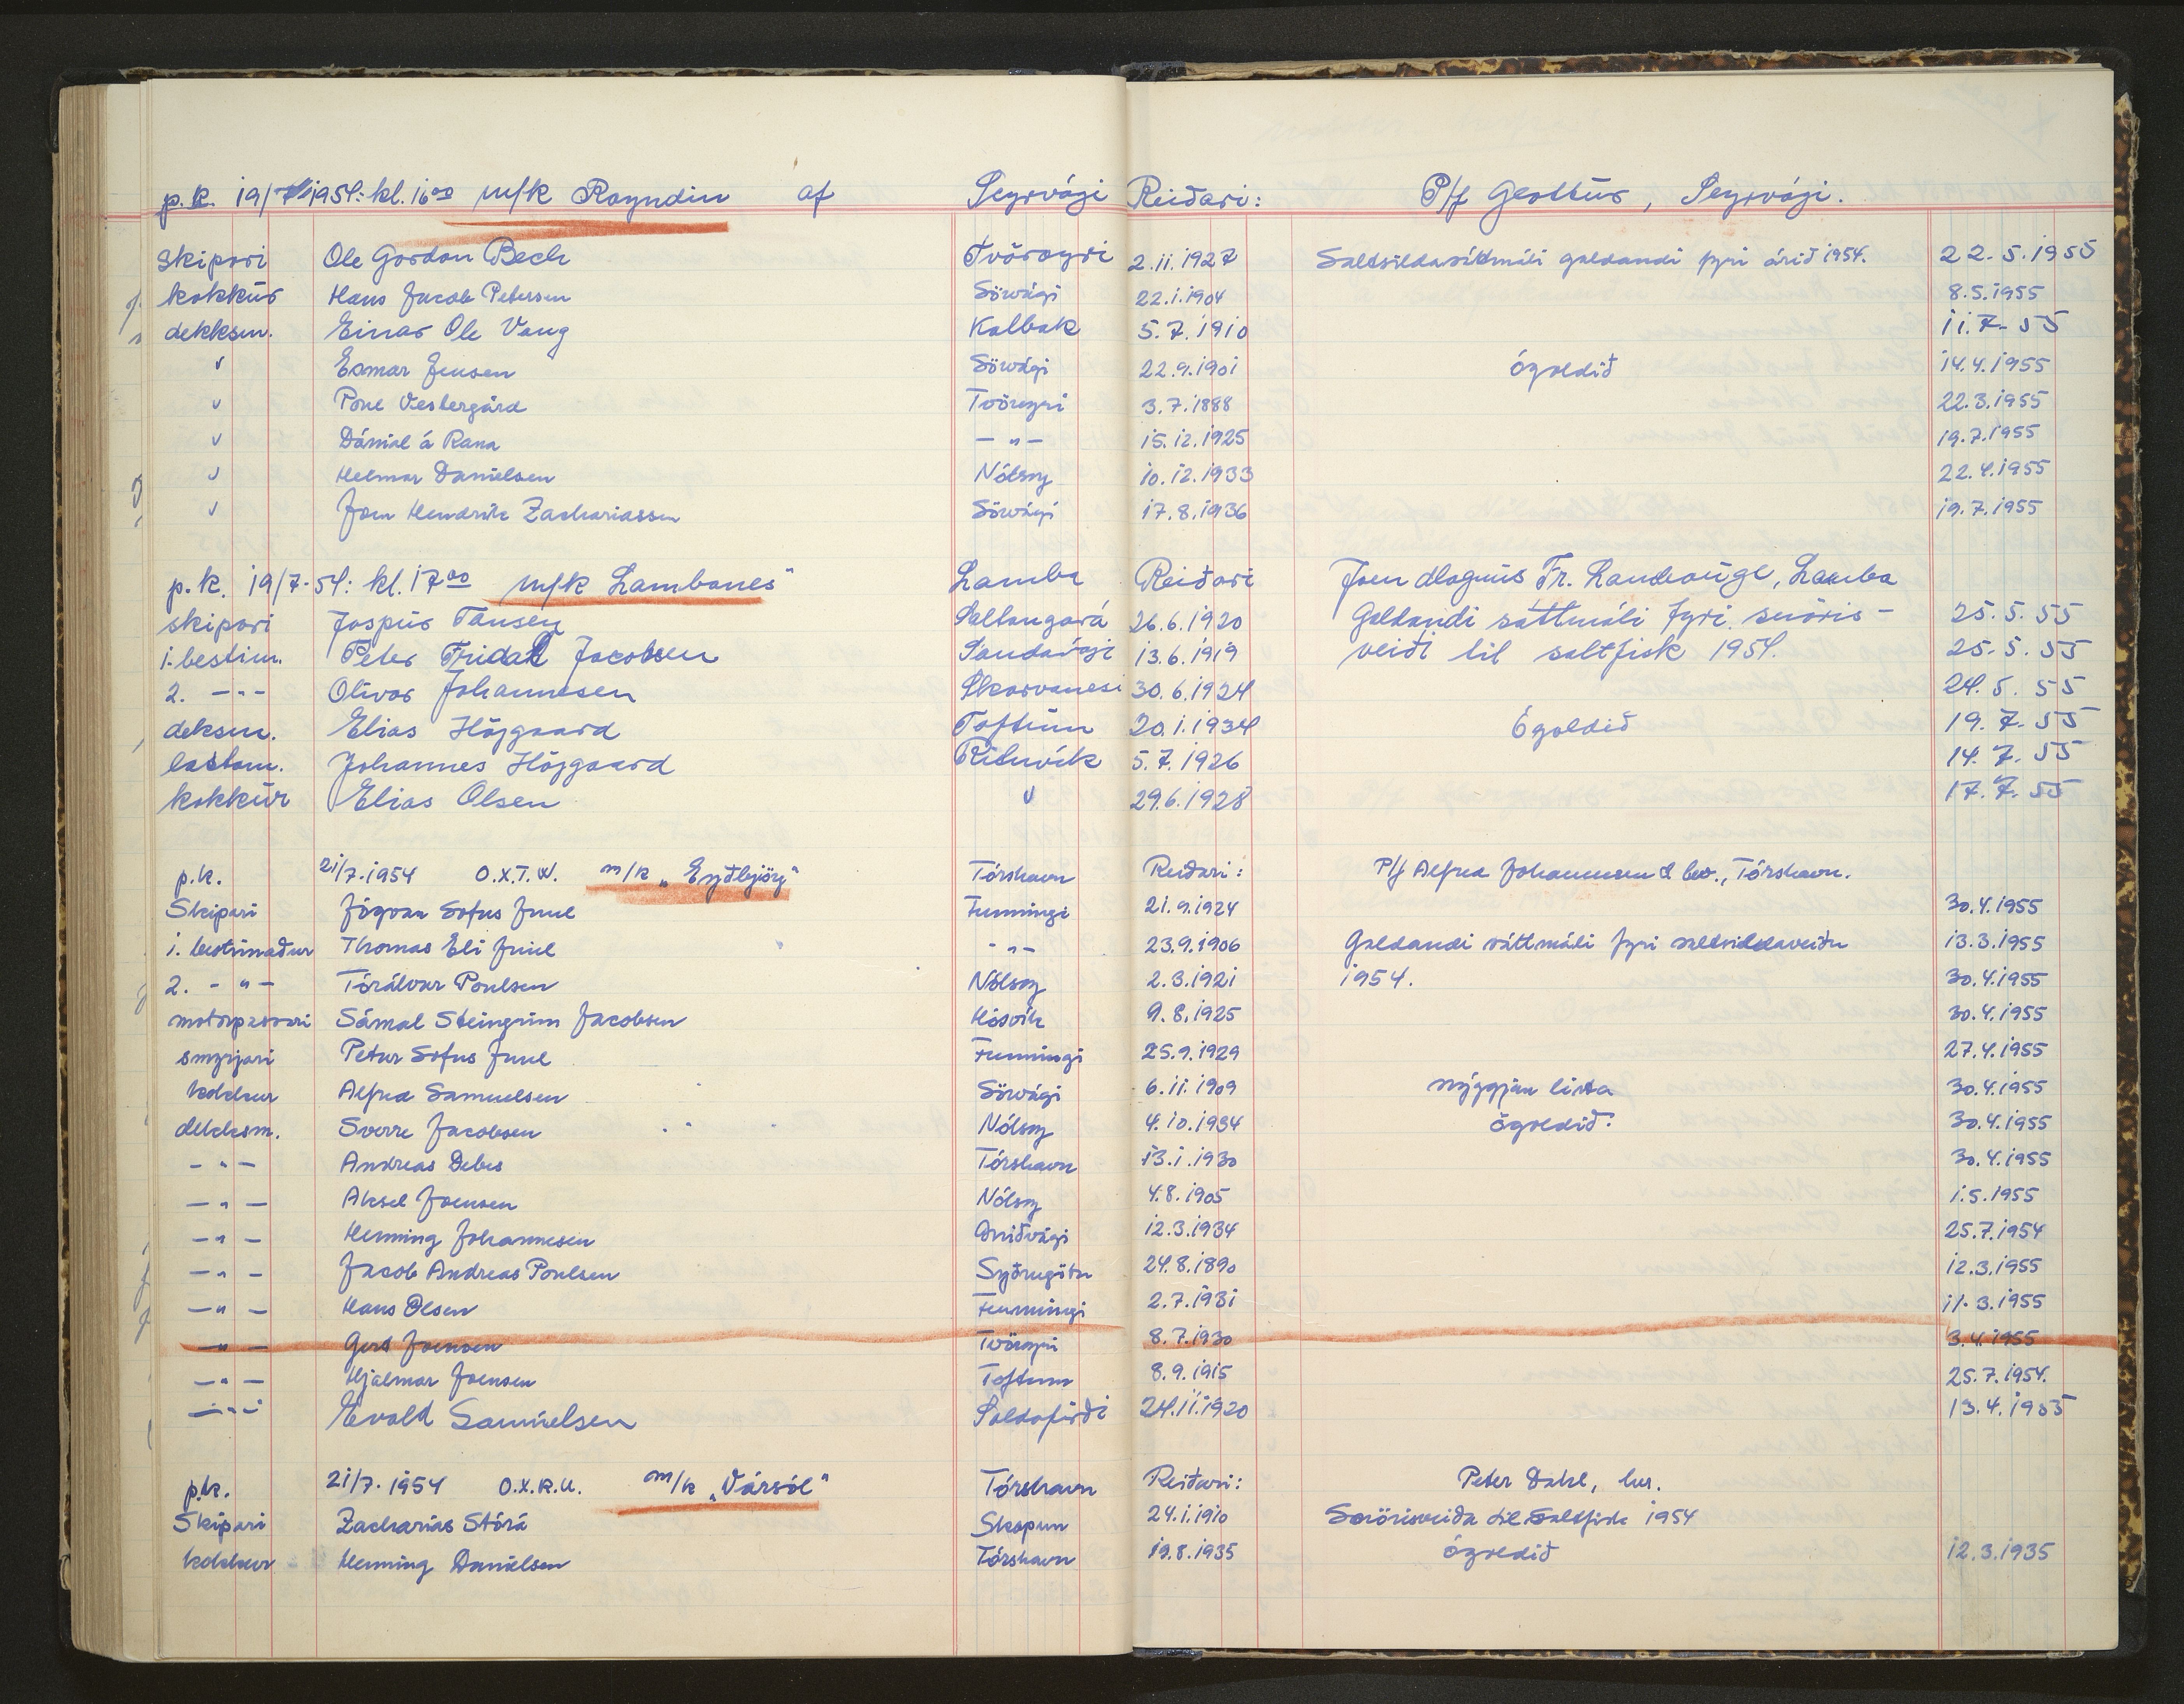 p.k. 19/7 1954: kl. 16⁰⁰ m/k Royndin af Seyrvági Reiðari: P/f Grottur, Seyrvági.
Skipari Ole Gordon Bech Tvöroyri 2.11.1927 Saltsildasáttmáli galdandi fyri árið 1954. 22.5.1955
kokkur Hans Jacob Petersen Sörvági 22.1.1904 8.5.1955
dekksm. Einar Ole Vang Kalbak 5.7.1910 11.7-55
" Esmar Jensen Sörvági 22.9.1901 ógoldið 14.4.1955
" Poul Vestergård Tvöroyri 3.7.1888 22.3.1955
" Dánial á Rana - " - 15.12.1925 19.7.1955
" Helmar Danielsen Nólsoy 10.12.1933 22.4.1955
" Joen Hendrik Zachariassen Sörvági 17.8.1936 19.7.1955
p.k. 19/7-54: kl. 17⁰⁰ m/k Lambanes" Lamba Reiðari Joen Magnus Fr. Landhauge, Lamba
skipari Jaspur Tausen Saltangará 26.6.1920 Galdandi sáttmáli fyri snöris- 25.5.55
1. bestim. Peter Fridal Jacobsen Sandavági 13.6.1919 veiði til saltfisk 1954. 25.5.55
2. - " - Olivar Johannesen Skarvanesi 30.6.1924 24.5.55
deksm. Elias Höjgaard Toftum 20.1.1934 Ógoldið 19.7-55
lastam. Johannes Höjgaard Rituvík 5.7.1926 14.7.55
kokkur Elias Olsen " 29.6.1928 17.7.55
p.k. 21/7.1954 O.X.T.W. m/k „Eyðbjörg" Tórshavn Reiðari: P/f Alfred Johannesen & Co., Tórshavn.
Skipari Jógvan Sofus Juul Funningi 21.9.1924 30.4.1955
1. bestimaður Thomas Eli Juul - " - 23.9.1906 Galdandi sáttmáli fyri saltsildaveiðu 13.3.1955
2. - " - Tórálvur Poulsen Nólsoy 2.3.1921 1954. 30.4.1955
motorpassari Sámal Steingrim Jacobsen Hósvík 9.8.1925 30.4.1955
smyrjari Petur Sofus Juul Funningi 25.9.1929 27.4.1955
kokkur Alfred Samuelsen Sörvági 6.11.1909 nýggjan lista 30.4.1955
dekksm. Sverre Jacobsen Nólsoy 4.10.1934 ógoldið: 30.4.1955
- " - Andreas Debes Tórshavn 13.1.1930 30.4.1955
- " - Aksel Joensen Nólsoy 4.8.1905 1.5.1955
- " - Henning Johannesen Miðvági 12.3.1934 25.7.1954
- " - Jacob Andreas Poulsen Syðrugötu 24.8.1890 12.3.1955
- " - Hans Olsen Funningi 2.7.1931 11.3.1955
- " - Gert Joensen Tvöroyri 8.7.1930 3.4.1955
- " - Hjalmar Joensen Toftum 8.9.1915 25.7.1954.
- " - Evald Samuelsen Saldafirði 24.11.1920 13.4.1955
p.k. 21/7.1954 O.X.R.U. m/k „Vársól" Tórshavn Reiðari: Peter Dahl, her.
Skipari Zacharias Stórá Skopun 24.1.1910 Snörisveiða til Saltfisk 1954
kokkur Henning Danielsen Tórshavn 19.8.1935 ógoldið 12.3.1935